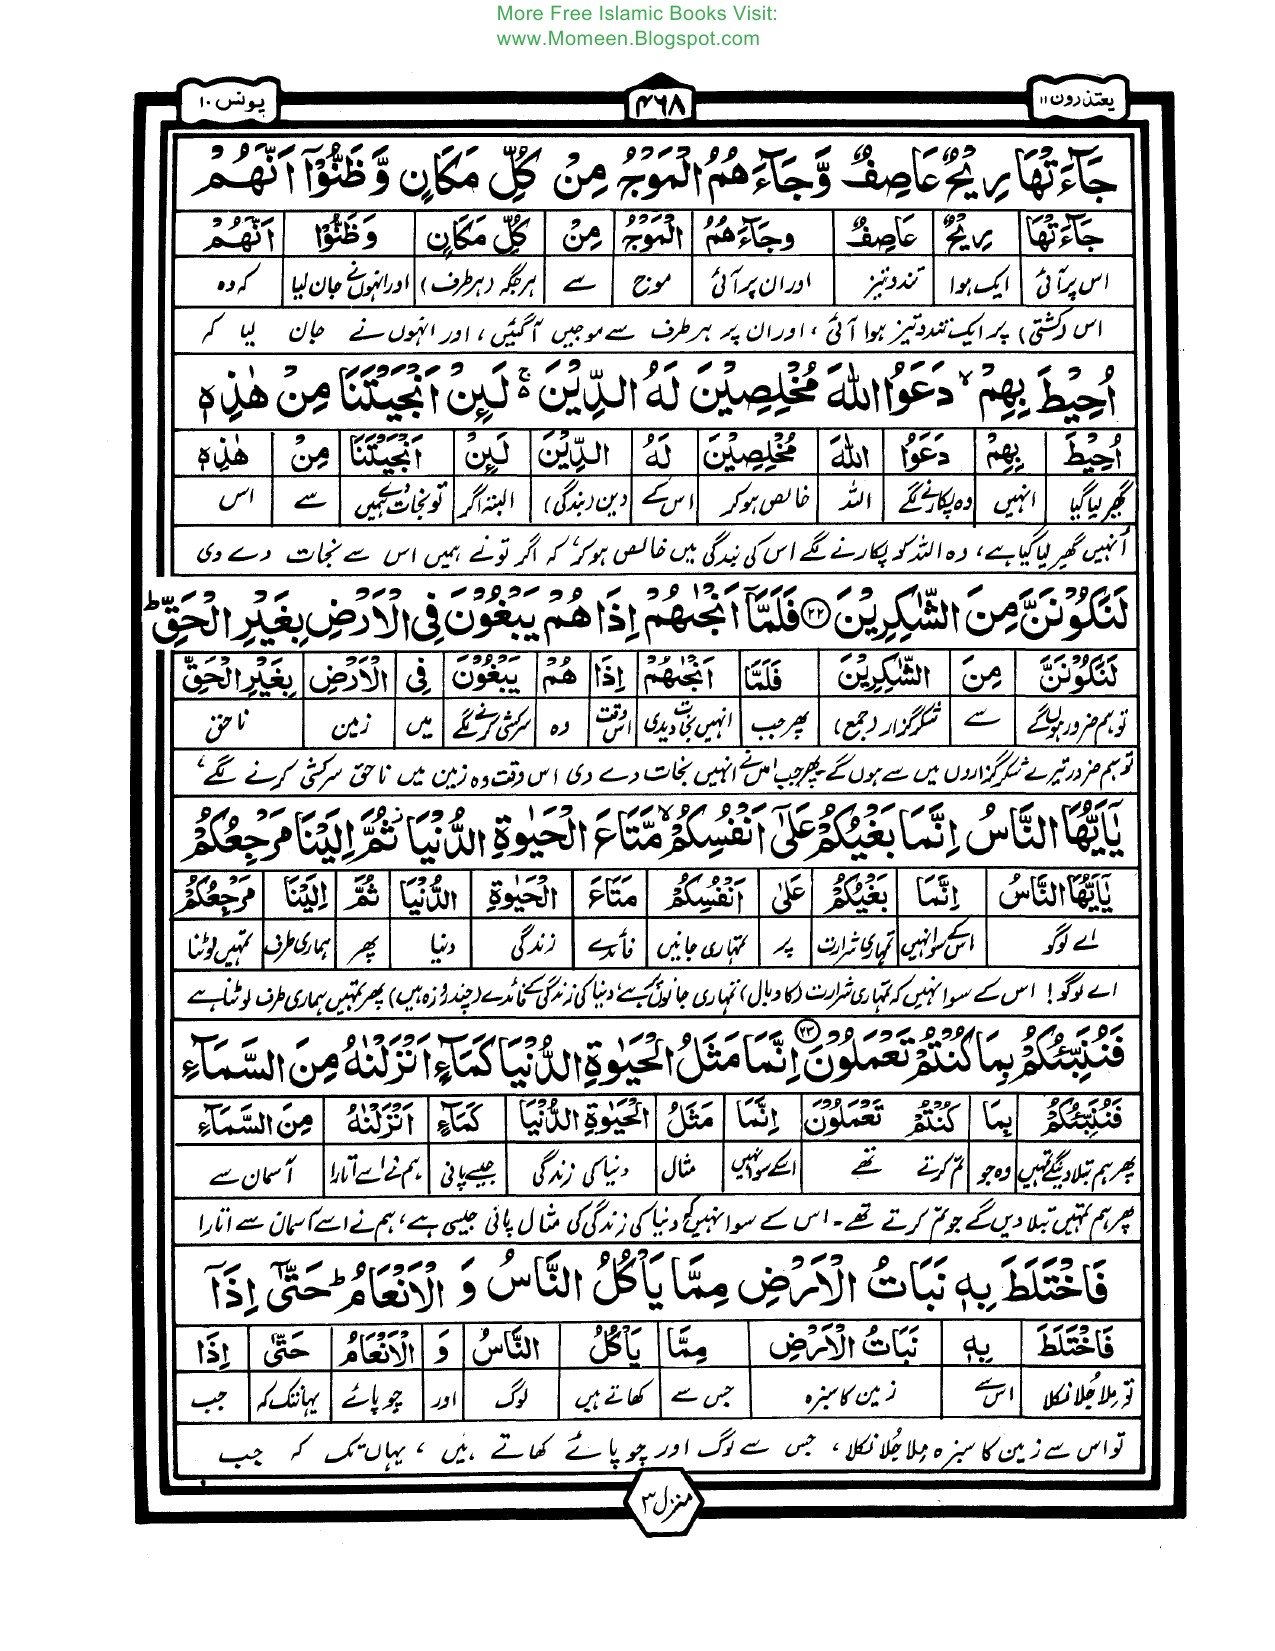 More Free Islamic Books Visit:
www.Momeen.Blogspot.com
یعتذرون ۱۱
۴۶۸
یونس ۱۰
جَآءَتْهَا رِیْحٌ عَاصِفٌ وَّجَآءَهُمُ الْمَوْجُ مِنْ كُلِّ مَكَانٍ وَّظَنُّوْۤا اَنَّهُمْ
جَآءَتْهَا رِیْحٌ عَاصِفٌ وجَآءَهُمُ الْمَوْجُ مِنْ كُلِّ مَكَانٍ وَظَنُّوْا اَنَّهُمْ
اس پر آئی ایک ہوا تند و تیز اور ان پر آئی موج سے ہر جگہ (ہر طرف) اور انہوں نے جان لیا کہ وہ
اس (کشتی) پر ایک تند و تیز ہوا آئی، اور ان پر ہر طرف سے موجیں آگئیں، اور انہوں نے جان لیا کہ
اُحِیْطَ بِهِمْ ۙ دَعَوُا اللهَ مُخْلِصِیْنَ لَهُ الدِّیْنَ ۚ لَىِٕنْ اَنْجَیْتَنَا مِنْ هٰذِهٖ
اُحِیْطَ بِهِمْ دَعَوُا اللهَ مُخْلِصِیْنَ لَهُ الدِّیْنَ لَىِٕنْ اَنْجَیْتَنَا مِنْ هٰذِهٖ
گھیر لیا گیا انہیں وہ پکارنے لگے اللہ خالص ہوکر اس کے دین (بندگی) البتہ اگر تو نجات دے ہمیں سے اس
اُنہیں گھیر لیا گیا ہے، وہ اللہ کو پکارنے لگے اس کی بندگی میں خالص ہوکر، کہ اگر تو نے ہمیں اس سے نجات دے دی
لَنَكُوْنَنَّ مِنَ الشّٰكِرِیْنَ ۲۲ فَلَمَّاۤ اَنْجٰىهُمْ اِذَا هُمْ یَبْغُوْنَ فِی الْاَرْضِ بِغَیْرِ الْحَقِّ ؕ
لَنَكُوْنَنَّ مِنَ الشّٰكِرِیْنَ فَلَمَّا اَنْجٰىهُمْ اِذَا هُمْ یَبْغُوْنَ فِی الْاَرْضِ بِغَیْرِ الْحَقِّ
تو ہم ضرور ہوں گے سے شکر گزار (جمع) پھر جب انہیں نجات دیدی اس وقت وہ سرکشی کرنے لگے میں زمین ناحق
تو ہم ضرور تیرے شکر گزاروں میں سے ہوں گے پھر جب اس نے انہیں نجات دے دی اس وقت وہ زمین میں ناحق سرکشی کرنے لگے،
یٰۤاَیُّهَا النَّاسُ اِنَّمَا بَغْیُكُمْ عَلٰۤى اَنْفُسِكُمْ ۙ مَّتَاعَ الْحَیٰوةِ الدُّنْیَا ؗ ثُمَّ اِلَیْنَا مَرْجِعُكُمْ
یٰۤاَیُّهَا النَّاسُ اِنَّمَا بَغْیُكُمْ عَلٰى اَنْفُسِكُمْ مَتَاعَ الْحَیٰوةِ الدُّنْیَا ثُمَّ اِلَیْنَا مَرْجِعُكُمْ
اے لوگو اس کے سوا نہیں تمہاری شرارت پر تمہاری جانیں فائدے زندگی دنیا پھر ہماری طرف تمہیں لوٹنا
اے لوگو! اس کے سوا نہیں کہ تمہاری شرارت (کا وبال) تمہاری جانوں پر ہے، دنیا کی زندگی کے فائدے (چند روزہ ہیں) پھر تمہیں ہماری طرف لوٹنا ہے
فَنُنَبِّئُكُمْ بِمَا كُنْتُمْ تَعْمَلُوْنَ ۲۳ اِنَّمَا مَثَلُ الْحَیٰوةِ الدُّنْیَا كَمَآءٍ اَنْزَلْنٰهُ مِنَ السَّمَآءِ
فَنُنَبِّئُكُمْ بِمَا كُنْتُمْ تَعْمَلُوْنَ اِنَّمَا مَثَلُ الْحَیٰوةِ الدُّنْیَا كَمَآءٍ اَنْزَلْنٰهُ مِنَ السَّمَآءِ
پھر ہم بتلا دینگے تمہیں وہ جو تم کرتے تھے اسکے سوا نہیں مثال دنیا کی زندگی جیسے پانی ہم نے اسے اتارا آسمان سے
پھر ہم تمہیں بتلا دیں گے جو تم کرتے تھے۔ اس کے سوا نہیں کہ دنیا کی زندگی کی مثال پانی جیسی ہے، ہم نے اسے آسمان سے اتارا
فَاخْتَلَطَ بِهٖ نَبَاتُ الْاَرْضِ مِمَّا یَاْكُلُ النَّاسُ وَ الْاَنْعَامُ ؕ حَتّٰۤى اِذَاۤ
فَاخْتَلَطَ بِهٖ نَبَاتُ الْاَرْضِ مِمَّا یَاْكُلُ النَّاسُ وَ الْاَنْعَامُ حَتّٰى اِذَا
تو ملا جُلا نکلا اس سے زمین کا سبزہ جس سے کھاتے ہیں لوگ اور چوپائے یہانتک کہ جب
تو اس سے زمین کا سبزہ ملا جُلا نکلا، جس سے لوگ اور چوپائے کھاتے ہیں، یہاں تک کہ جب
منزل ۳